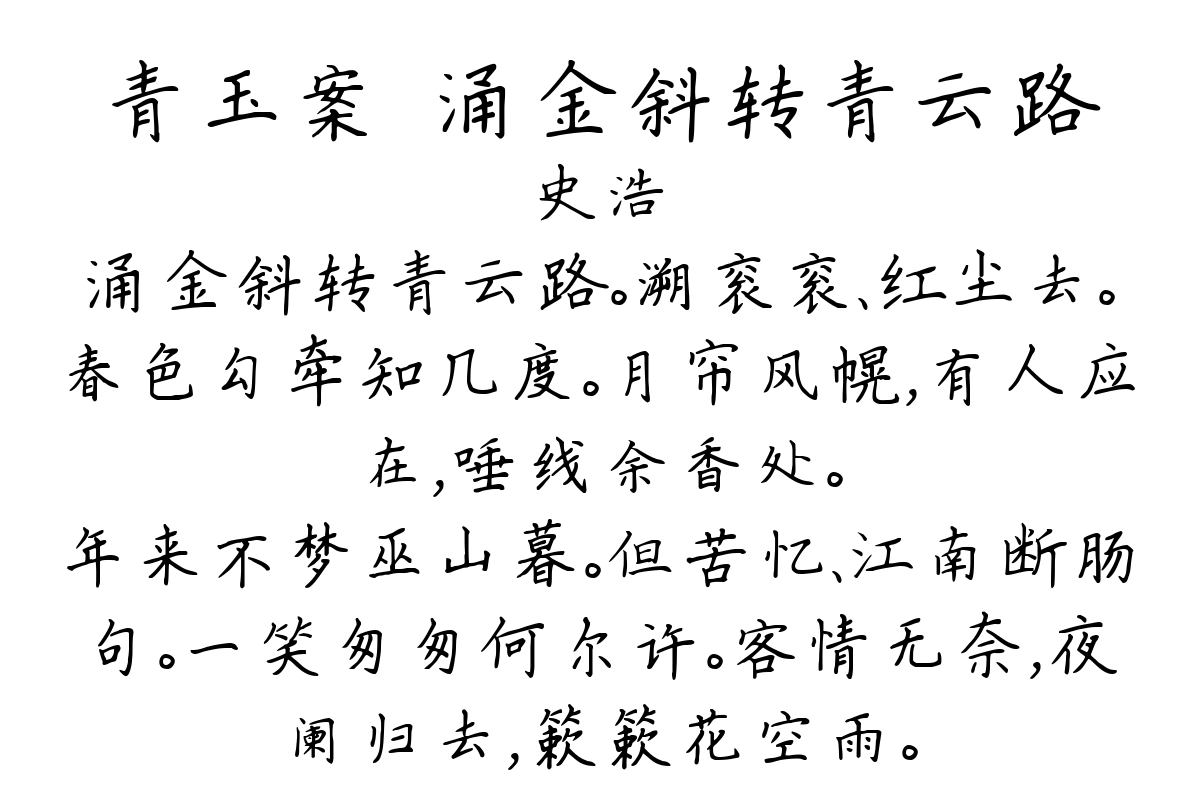 青玉案 涌金斜转青云路
史浩
涌金斜转青云路。溯衮衮、红尘去。
春色勾牵知几度。月帘风幌,有人应
在,唾线余香处。
年来不梦巫山暮。但苦忆、江南断肠
句。一笑匆匆何尔许。客情无奈,夜
阑归去,簌簌花空雨。